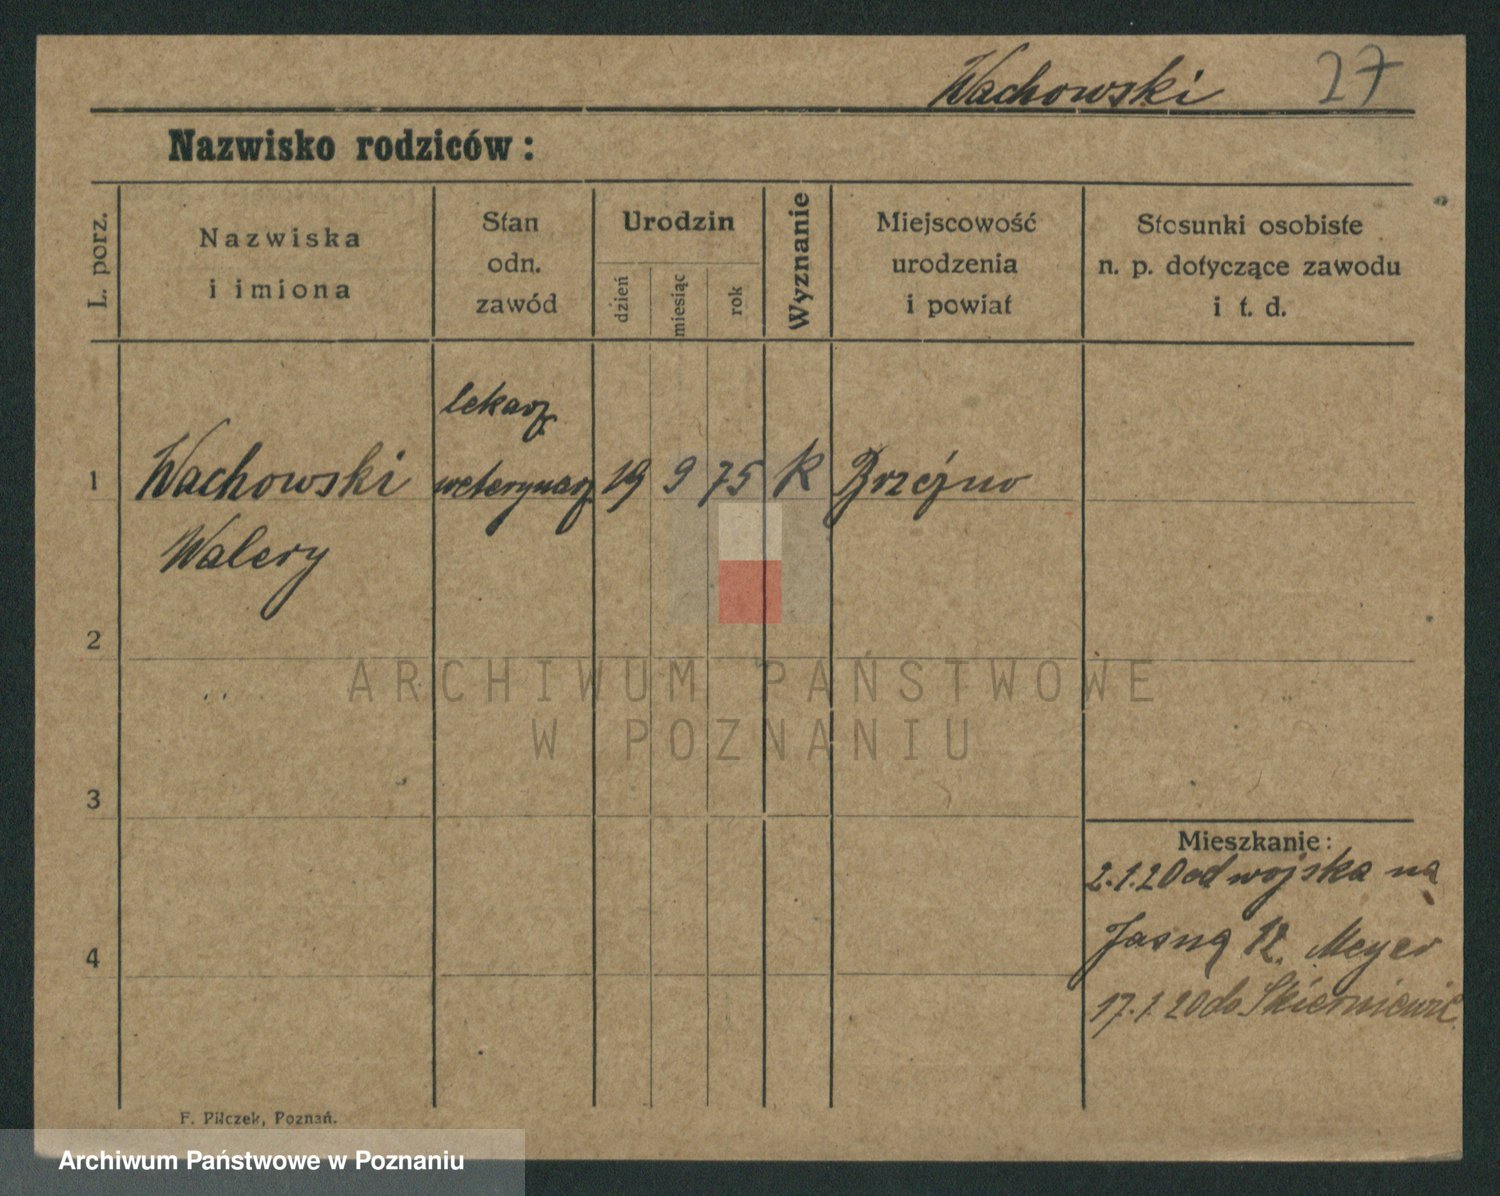 Wachowski 27
Nazwisko rodziców :
L. porz.
Nazwiska
i imiona
Stan
odn.
zawód
Urodzin
dzień
miesiąc
rok
Wyznanie
Miejscowość
urodzenia
i powiat
Stosunki osobiste
n. p. dotyczące zawodu
i t. d.
lekarz
1 Wachowski weterynarz 19 9 75 K Brzéźno
Walery
2
ARCHIWUM PAŃSTWOWE
W POZNANIU
3
Mieszkanie:
2.1.20 od wojska na
4 Jasną 12. Meyer
17.1.20 do Skierniewic
F. Piłczek, Poznań.
Archiwum Państwowe w Poznaniu